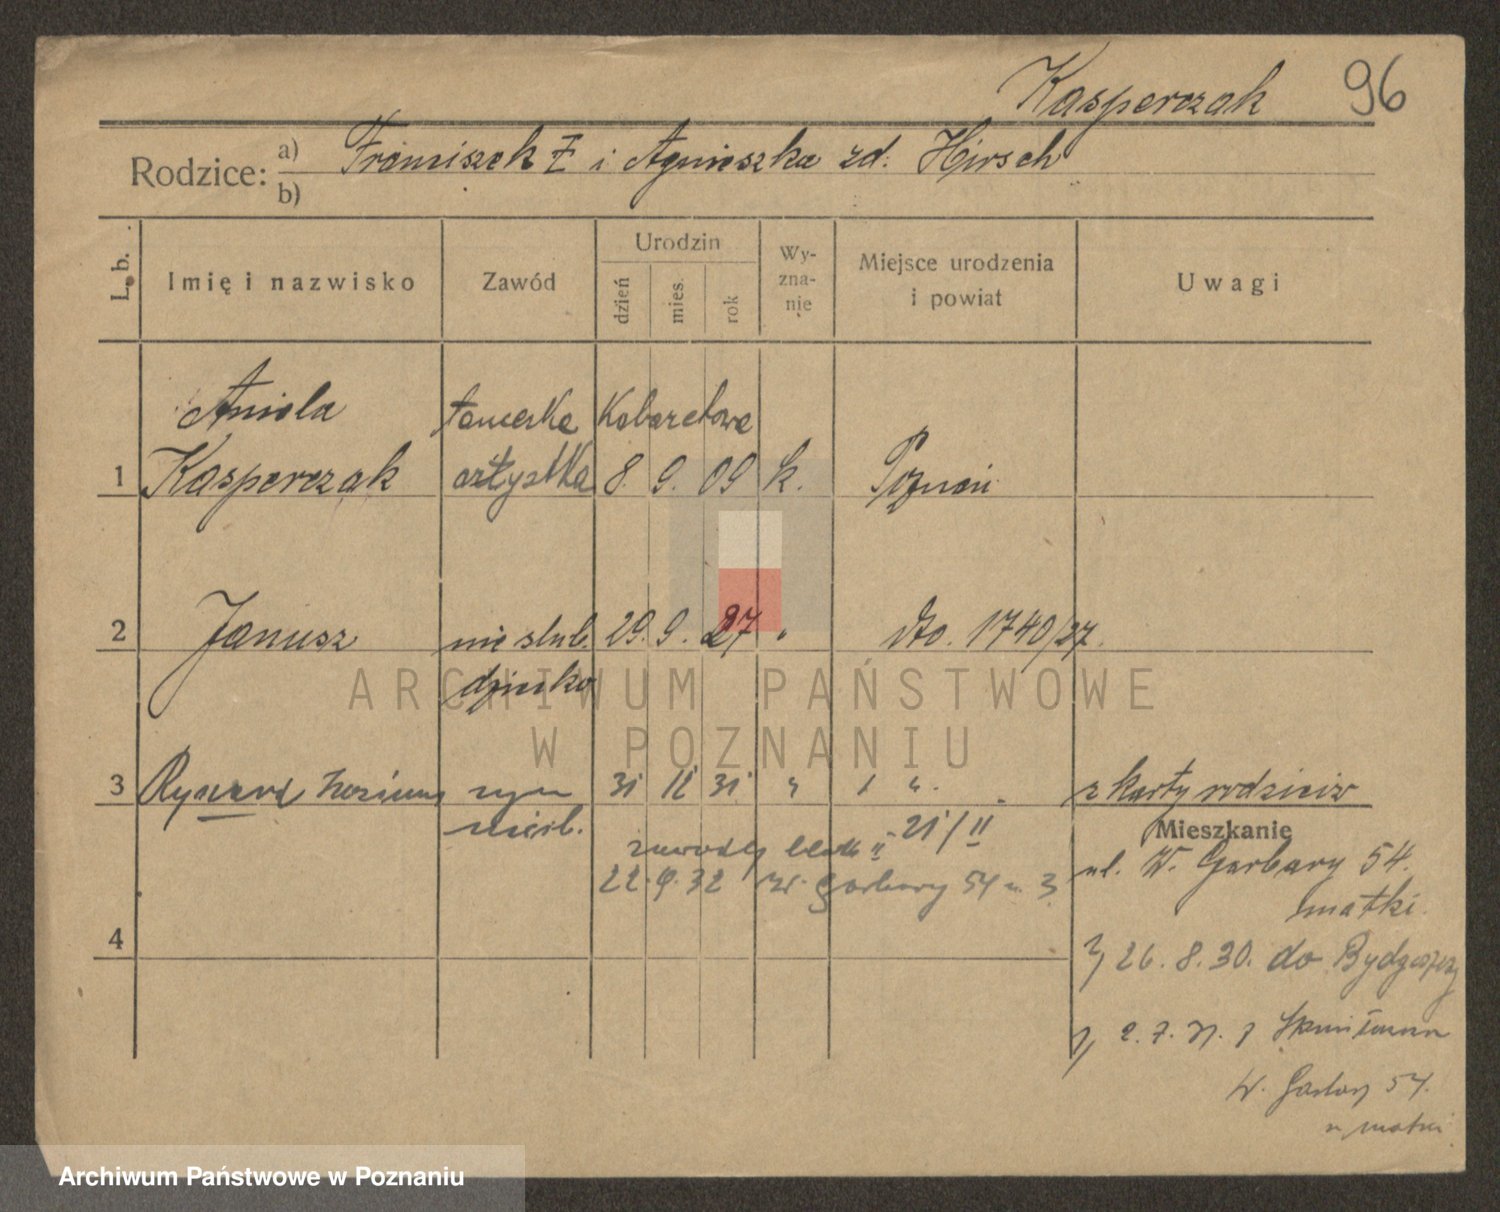 Kasperczak 96
Rodzice: a) Franciszek Ł i Agnieszka zd. Hirsch
b)
L. b. Imię i nazwisko Zawód Urodzin dzień mies. rok Wyznanie Miejsce urodzenia i powiat Uwagi
Aniela tancerka Kabaretowa
1 Kasperczak artystka 8. 9. 09 k. Poznań
2 Janusz nieślub. 29. 9. 27 " dto. 1740/27.
dziecko
3 Ryszard syn 31 12 31 " " z karty rodziców
nieśl.
21/II
Mieszkanie
ul. W. Garbary 54.
22.9.32 W. Garbary 54 m. 3
matki
4
26. 8. 30. do Bydgoszczy
2. 7. 31. z
W. Garbary 54.
u matki
ARCHIWUM PAŃSTWOWE
W POZNANIU
Archiwum Państwowe w Poznaniu